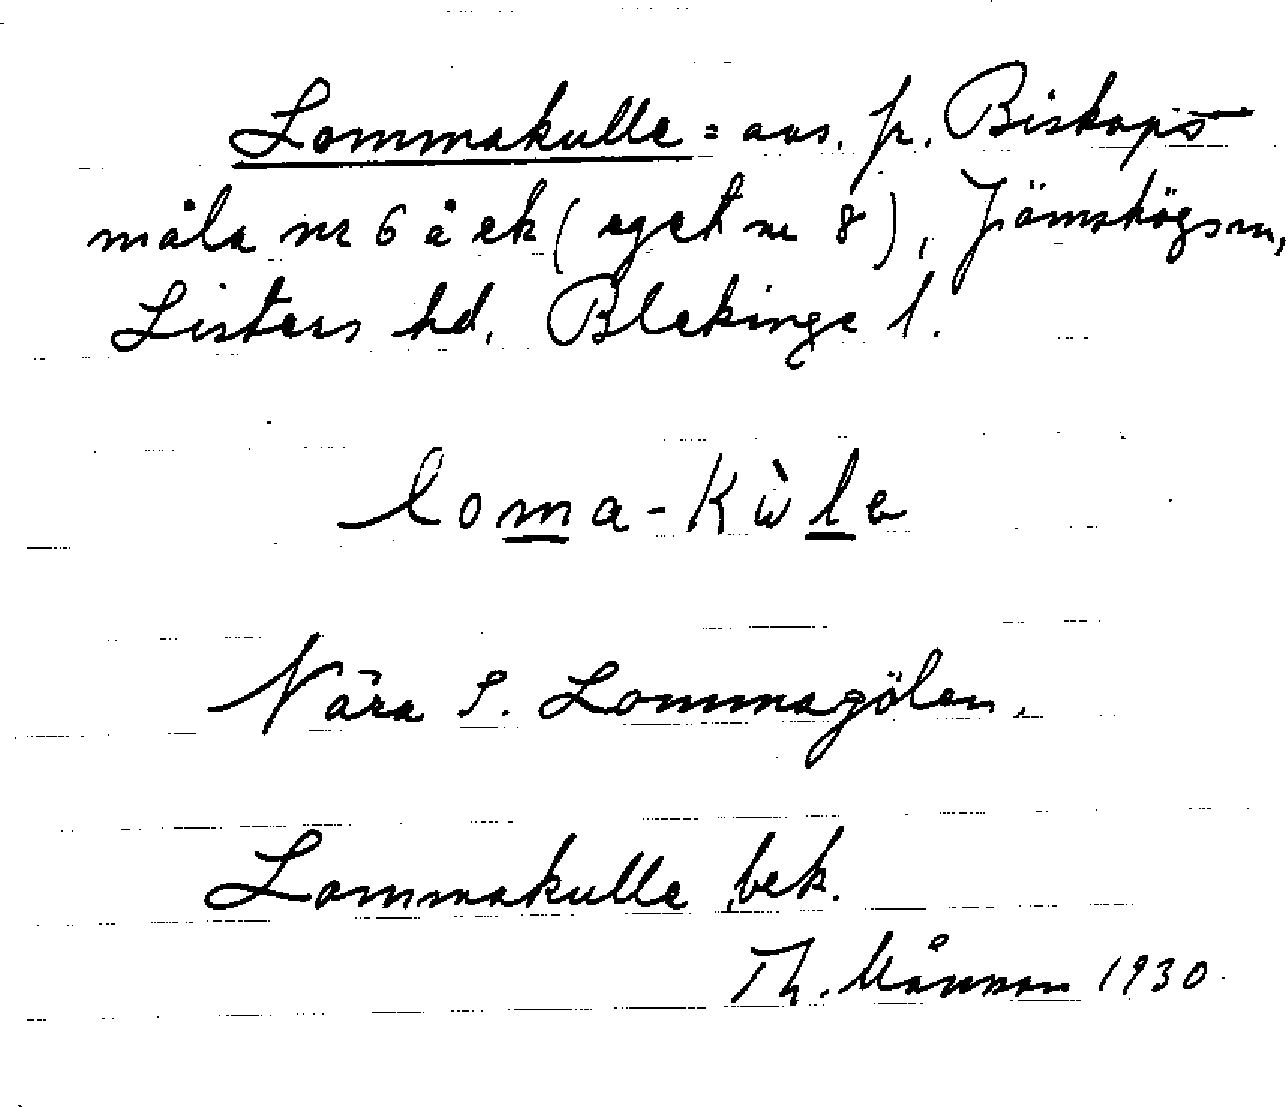 Lommakulle = avs. fr. Biskops
måla nr 6 å ek (eget nr 8), Jämshögsn,
Listers hd. Blekinge l.
loma-kùle
Nära S. Lommagölen.
Lommakulle bek.
Th. Månsson 1930